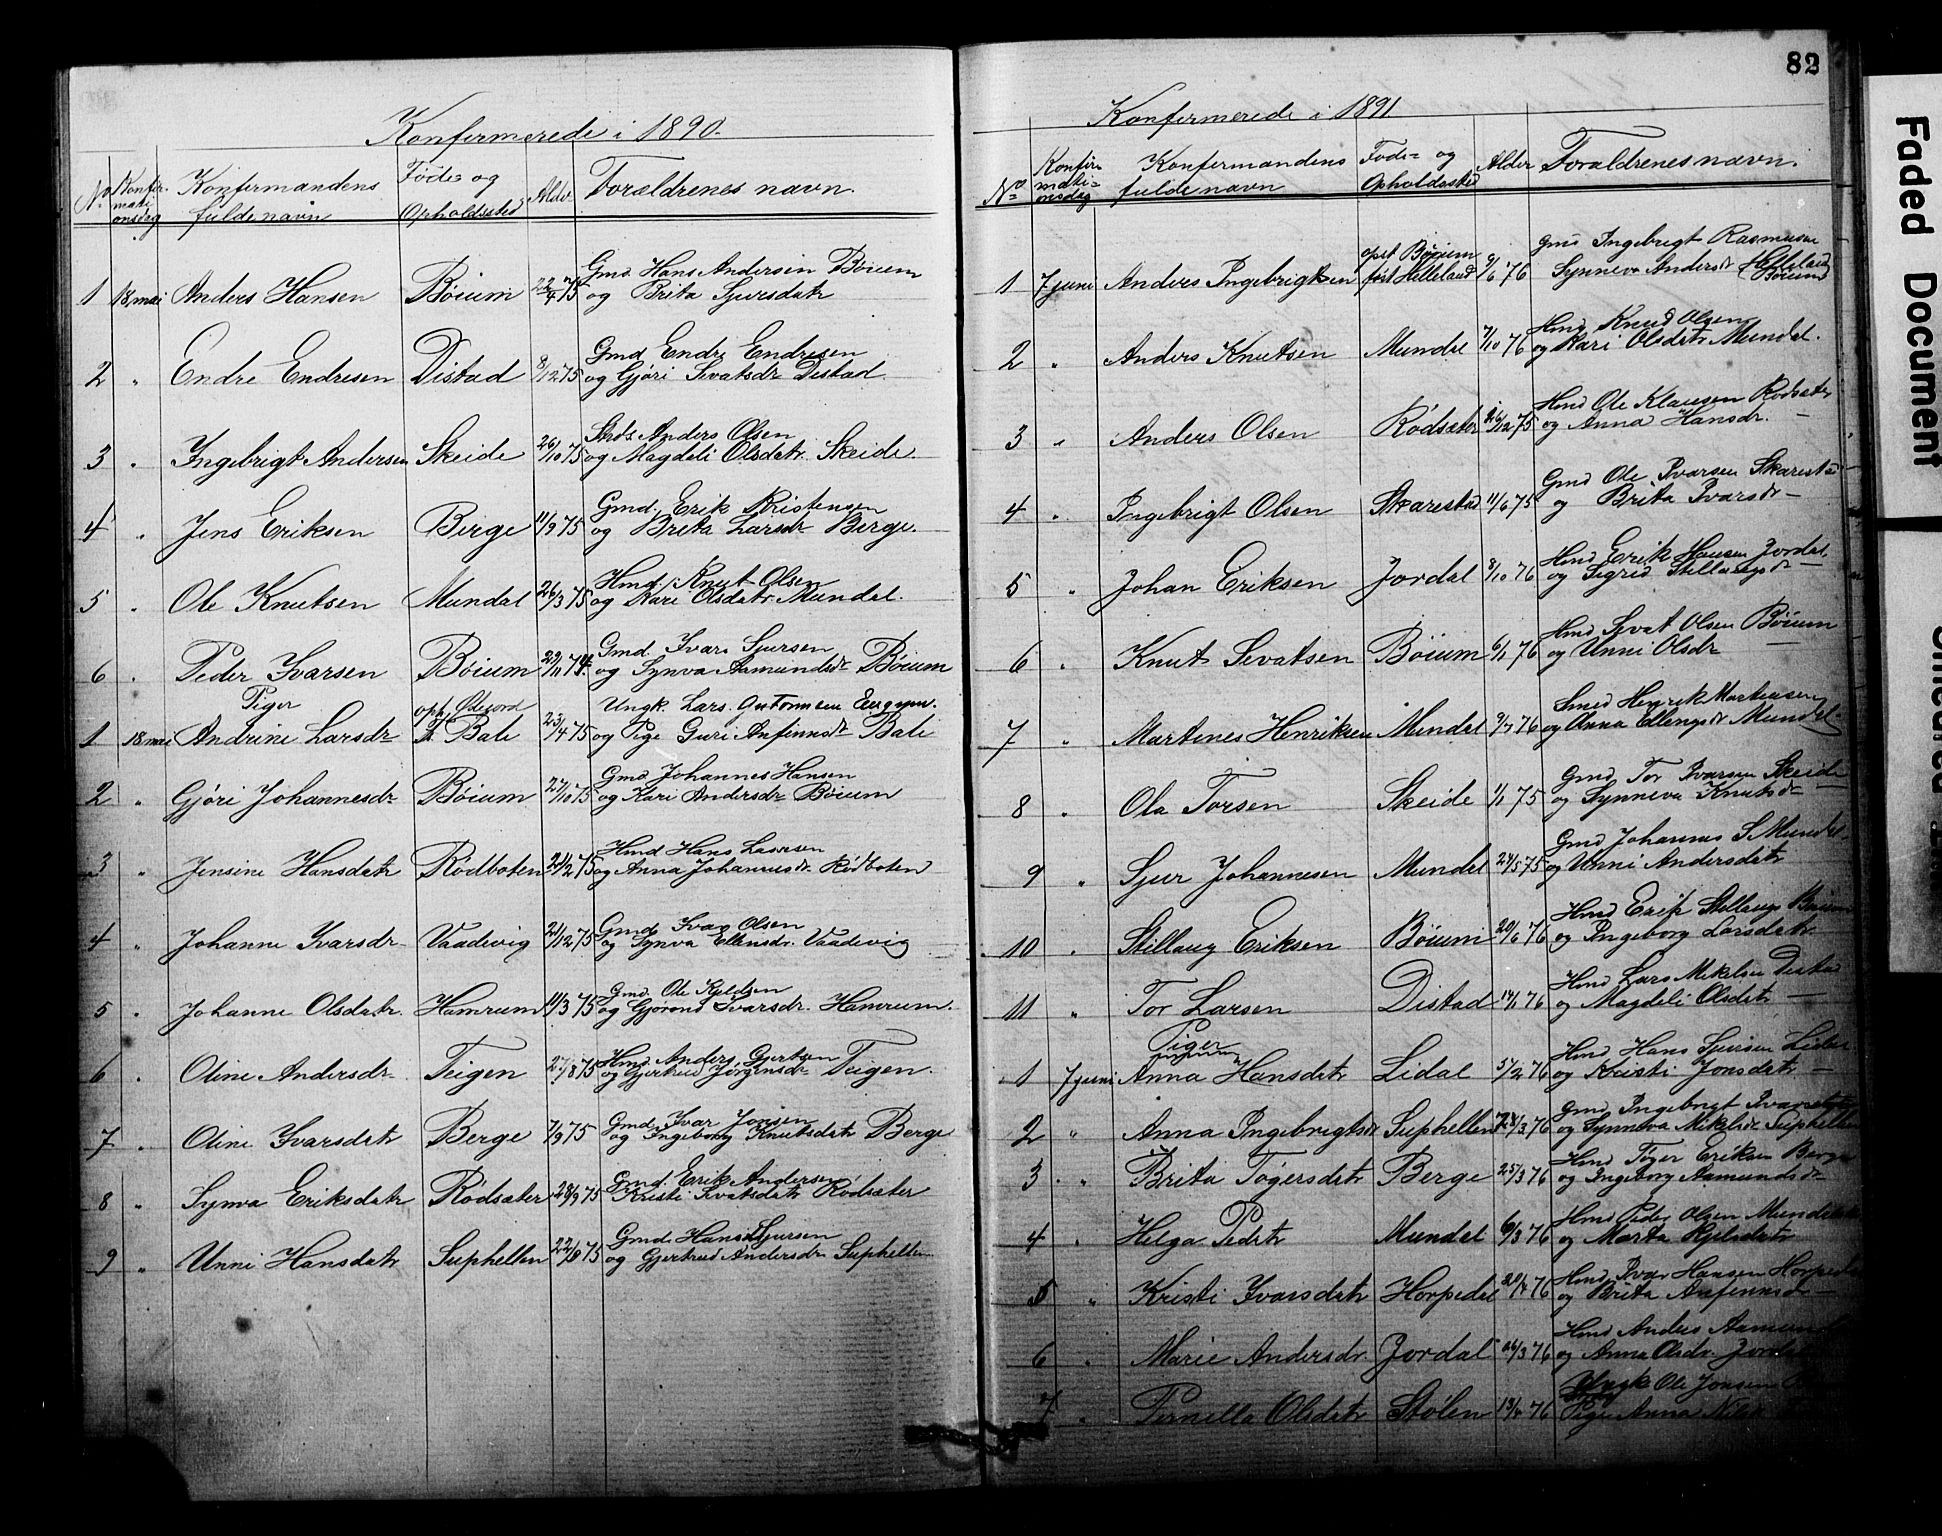 Konfermerede i 1890.
No Konfir-mationsdag Konfermandens fulde navn Føde- og Opholdssted Alder Forældrenes navn.
1 18 mai Anders Hansen Bøium 22/4 75 Gmd Hans Andersen Bøium
og Brita Sjursdatr
2 " Endre Endresen Distad 8/12 75 Gmd Endre Endresen
og Gjøri Sevatsdr Distad
3 " Ingebrigt Andersen Skeide 26/10 75 Anders Olsen
og Magdeli Olsdatr. Skeide
4 " Jens Eriksen Berge 11/9 75 Gmd. Erik Kristensen
og Brita Larsdr Berge.
5 " Ole Knutsen Mundal 26/3 75 Hmd. Knut Olsen
og Kari Olsdatr Mundal.
6 " Peder Ivarsen Bøium 29/11 74. Gmd Ivar Sjursen
og Synva Aamundsdr Bøium
Piger
1 18 mai Andrine Larsdr opf. f. Bale 23/4 75 Ungk. Lars
og Pige Guri Anfinnsdr Bale
2 " Gjøri Johannesdr Bøium 27/10 75 Gmd Johannes Hansen
og Kari Andersdr Bøium
3 " Jensine Hansdatr Rødboten 21/2 75 Hmd Hans Lassesen
og Anna Johannesdr Rødboten
4 " Johanne Ivarsdr Vaadevig 21/12 75 Gmd Ivar Olsen
og Synva Ellensdr. Vaadevig
5 " Johanne Olsdatr. Hamrum 11/3 75 Gmd. Ole
og Gjørond Ivarsdr. Hamrum.
6 " Oline Andersdr Teigen 27/8 75 Hmd Anders Gjertsen
og Gjertrud Jørgensdr Teigen.
7 " Oline Ivarsdatr Berge 7/9 75 Gmd. Ivar Jonsen
og Ingeborg Knutsdatr Berge
8 " Synva Eriksdatr Rødsæter 28/9 75 Gmd. Erik Andersen
Kristi Sevatsdatr Rødsæter
9 " Unni Hansdatr Suphellen 22/8 75 Gmd Hans Sjursen
og Gjertrud Andersdr Suphellen
82
Konfermerede i 1891
No Konfir-mati-onsdag Konfermandens fulde navn Føde- og Opholdssted Alder Forældrenes navn.
1 7 juni Anders Ingebrigtsen opf Bøium født Helleland 9/6 76 Gmd Ingebrigt Rasmusen
Synneva Andersdr Helleland Bøium
2 " Anders Knutsen Mundal 7/10 76 Hmd Knud Olsen
og Kari Olsdatr Mundal.
3 " Anders Olsen Rødsæter 26/12 75 Hmd Ole Klausen Rødsæter
og Anna Hansdr. —
4 " Ingebrigt Olsen Skarestad 11/6 75 Gmd Ole Ivarsen Skarestad
og Brita Ivarsdr —
5 " Johan Eriksen Jordal 8/10 76 Hmd Erik Hansen Jordal
og Sigrid Stellaugsdr —
6 " Knut Sevatsen Bøium 6/1 76 Hmd Sevat Olsen Bøium
og Unni Olsdr —
7 " Martenes Henriksen Mundal 9/7 76 Smed Henrik Martensen
og Anna Ellengsdr Mundal.
8 " Ola Torsen Skeide 1/1 75 Gmd Tor Ivarsen Skeide
og Synneva Knutsdr —
9 " Sjur Johannesen Mundal 24/5 75 Gmd Johannes S Mundal
og Unni Andersdatr
10 " Stellaug Eriksen Bøium 20/6 76 Hmd Erik Stellaugs Bøium
og Ingeborg Larsdatr —
11 " Tor Larsen Distad 14/1 76 Hmd Lars Mikelsen Distad
og Magdeli Olsdatr —
Piger
1 7 juni Anna Hansdatr Lidal 5/2 76 Hmd Hans Sjursen Lidal
og Kristi Jonsdatr —
2 " Anna Ingebrigtsdr Suphellen 24/3 76 Gmd Ingebrigt
og Synneva Mikelsdr Suphellen
3 " Brita Tøgersdatr Berge 25/3 76 Hmd Tøger Eriksen Berge
og Ingeborg Aamundsdr
4 " Helga Pedtr Mundal 6/3 76 Hmd Peder Olsen Mundal
og Marta
5 " Kristi Ivarsdatr Horpedal 20/4 76 Hmd Ivar Hansen Horpedal
og Brita Anfinnsdr —
6 " Marie Andersdr. Jordal 26/3 76 Hmd Anders
og Anna Olsdr. Jordal
7 " Pernella Olsdatr Stølen 13/4 76 Ungk Ole Jonsen
Pige Anna
Faded Document